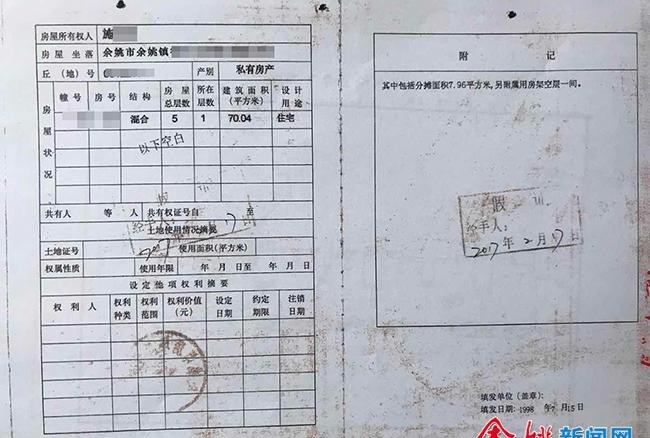 房屋所有权人 施
房屋坐落 余姚市余姚镇
丘（地）号 产别 私有房产
房屋状况
幢号 房号 结构 房屋总层数 所在层数 建筑面积（平方米） 设计用途
混合 5 1 70.04 住宅
以下空白
共有人 等 人 共有权证号自 至
土地使用情况摘要
土地证号 使用面积（平方米）
权属性质 使用年限 年 月 日至 年 月 日
设定他项权利摘要
权利人 权利种类 权利范围 权利价值（元） 设定日期 约定期限 注销日期
附 记
其中包括分摊面积7.96平方米，另附属用房架空层一间。
假
经手人：
2017年2月17日
填发单位（盖章）：
填发日期：1998 年7 月15日
余姚新闻网